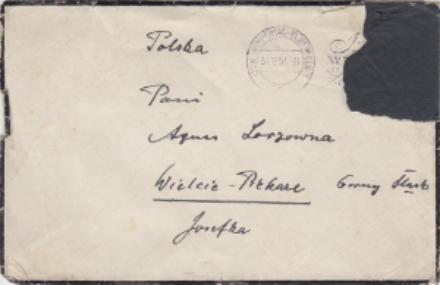 Polska
Pani
Agnes Lorzowna
Wielkie-Piekare Gorny Śląsk
Josefka